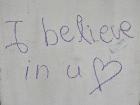 I believe
in u ♡